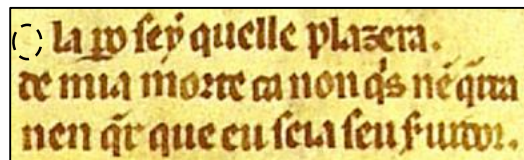 la ꝑo ſeẏ quelle plazera.
de mia morte ca non q̓s nē q̓rra
nen q̄r que eu ſeia ſeu ſ̓uidor.